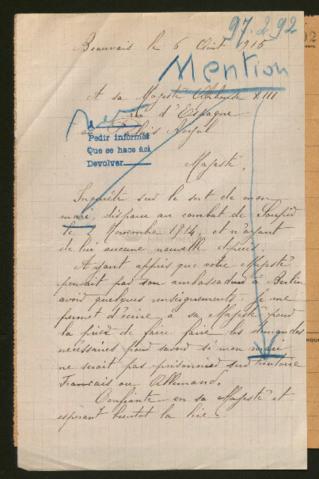 97.2.92
Beauvais le 6 Août 1915
Mention
A sa Majesté Alphonse XIII
Roi d'Espagne
Palais Royal
Pedir informes
Que se hace acá
Devolver
Majesté,
Inquiète sur le sort de mon
mari, disparu au combat de Soupir
le 2 Novembre 1914, et n'ayant
de lui aucune nouvelle depuis.
Ayant appris que votre Majesté
pouvait par son ambassadeur à Berlin
avoir quelques renseignements. Je me
permet d'écrire à sa Majesté pour
la prier de faire faire les demandes
nécessaires pour savoir si mon mari
ne serait pas prisonnier sur territoire
Français ou Allemand.
Confiante en sa Majesté et
espérant bientôt la lire.